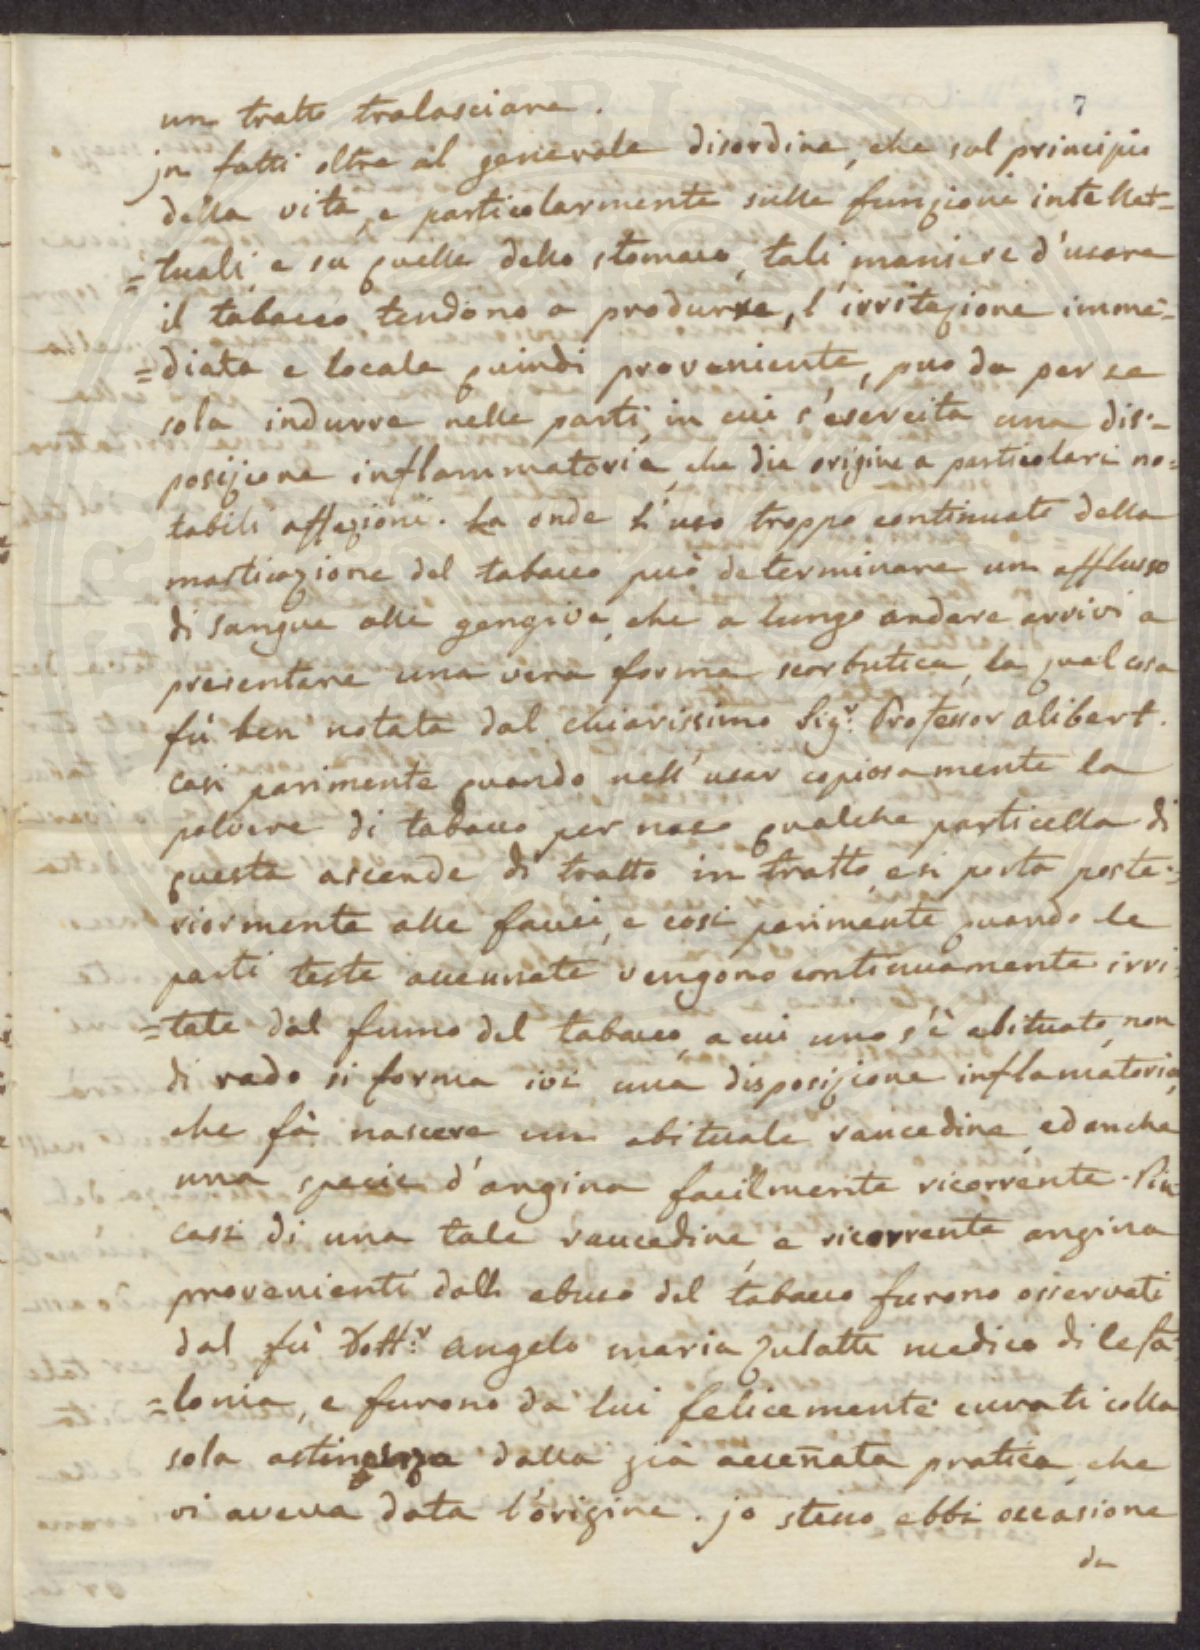 7
un tratto tralasciare.
jn fatti oltre al generale disordine, che sul principio
della vita, e particolarmente sulle funzioni intellet-
=tuali, e su quelle dello stomaco, tali maniere d'usare
il tabacco tendono a produrre, l'irritazione imme-
=diata e locale quindi proveniente, può da per se
sola indurre nelle parti, in cui s'esercita una dis-
posizione inflammatoria, che dia origine a particolari no=
tabili affezioni. La onde l'uso troppo continuato della
masticazione del tabacco può determinare un afflusso
di sangue alle gengive, che a lungo andare arrivi a
presentare una vera forma scorbutica, la qual cosa
fù ben notata dal chiarissimo Sig.r Professor Alibert.
Casi parimente quando nell'usar copiosamente la
polvere di tabacco per naso qualche particella di
questa ascende di tratto in tratto, e si porta poste=
riormente alle fauci, e così parimente quando le
parti teste accennate vengono continuamente irri=
=tate dal fumo del tabacco, a cui uno s'è abituato, non
di rado si forma ivi una disposizione inflamatoria,
che fà nascere un abituale raucedine, ed anche
una specie d'angina facilmente ricorrente. Più
casi di una tale raucedine, e ricorrente angina
provenienti dall abuso del tabacco furono osservati
dal fù Dott.r Angelo Maria Zulatti medico di Cefa=
=lonia, e furono da lui felicemente curati colla
sola astinenza dalla già acceñata pratica, che
vi aveva data l'origine. jo stesso ebbi occasione
da